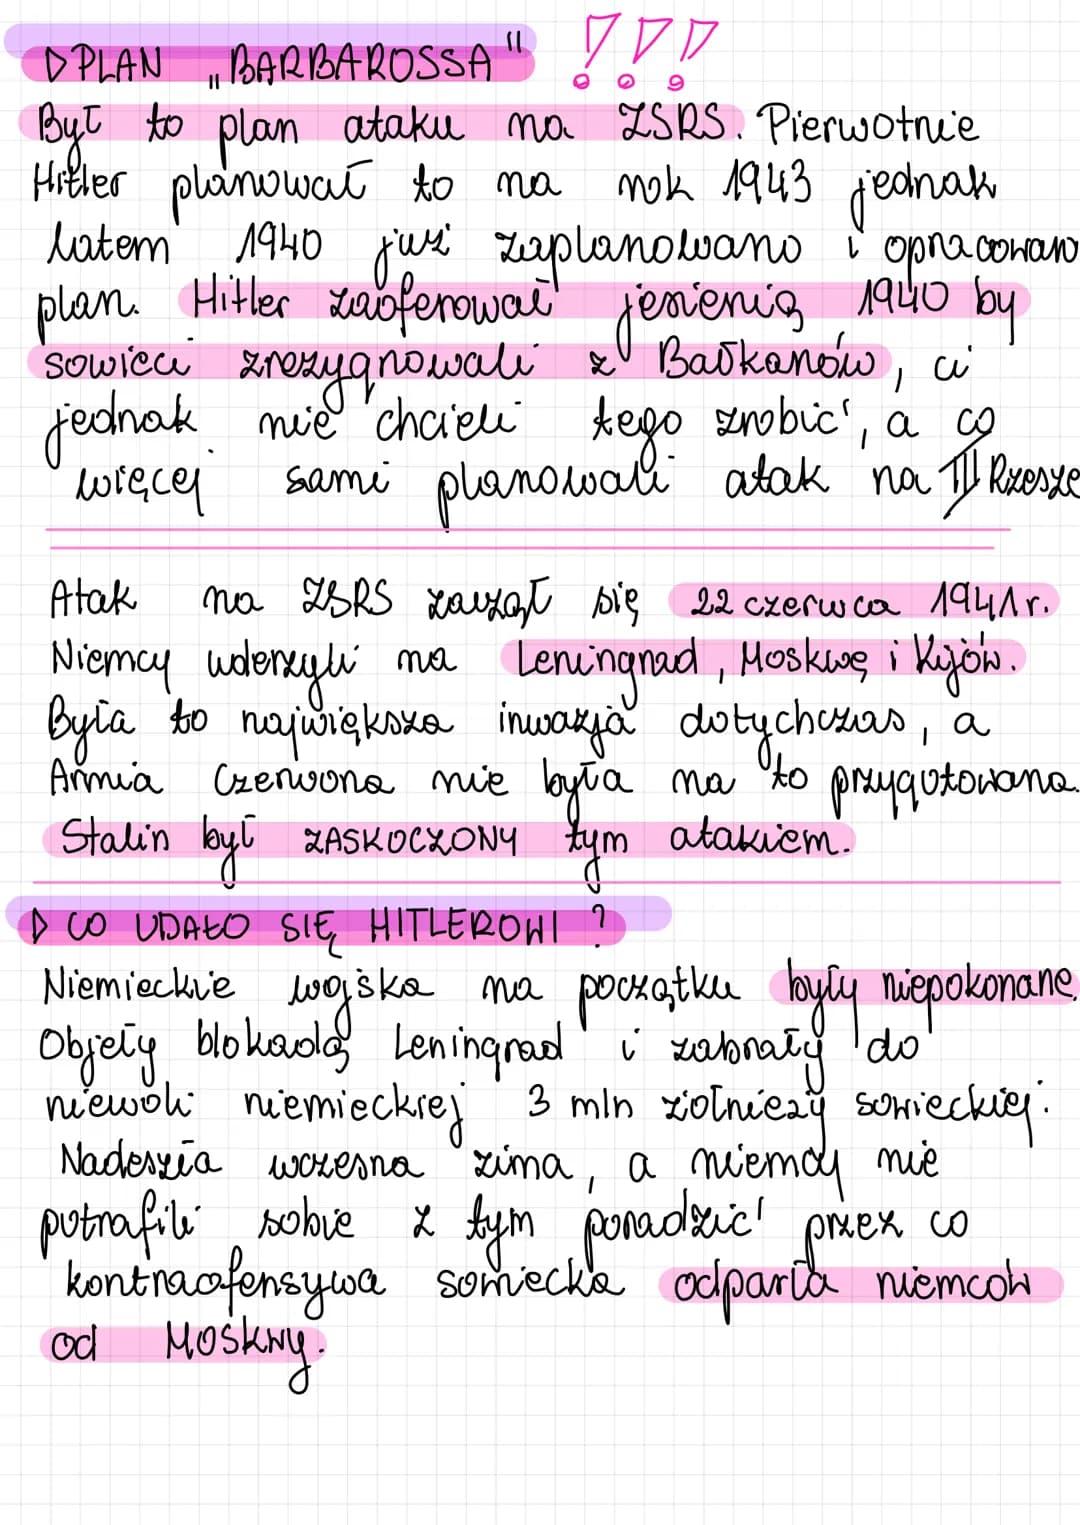 ▷ PLAN „BARBAROSSA" !!!
Był to plan ataku na ZSRS. Pierwotnie
Hitler planował to na rok 1943 jednak
latem 1940 już zaplanowano i opracowano
plan. Hitler zaoferował jesienią 1940 by
sowieci zrezygnowali z Bałkanów, ci
jednak nie chcieli tego zrobić, a co
więcej sami planowali atak na III Rzesze
Atak na ZSRS zaczął się 22 czerwca 1941 r.
Niemcy uderzyli na Leningrad, Moskwę i Kijów.
Była to największa inwazja dotychczas, a
Armia Czerwona nie była na to przygotowana.
Stalin był ZASKOCZONY tym atakiem.
▷ CO UDAŁO SIĘ HITLEROWI ?
Niemieckie wojska na początku były niepokonane.
Objęły blokadą Leningrad i zabrały do
niewoli niemieckiej 3 mln żołnieży sowieckiej.
Nadeszła wczesna zima, a niemcy nie
potrafili sobie z tym poradzić przez co
kontraofensywa sowiecka odparła niemców
od Moskwy.